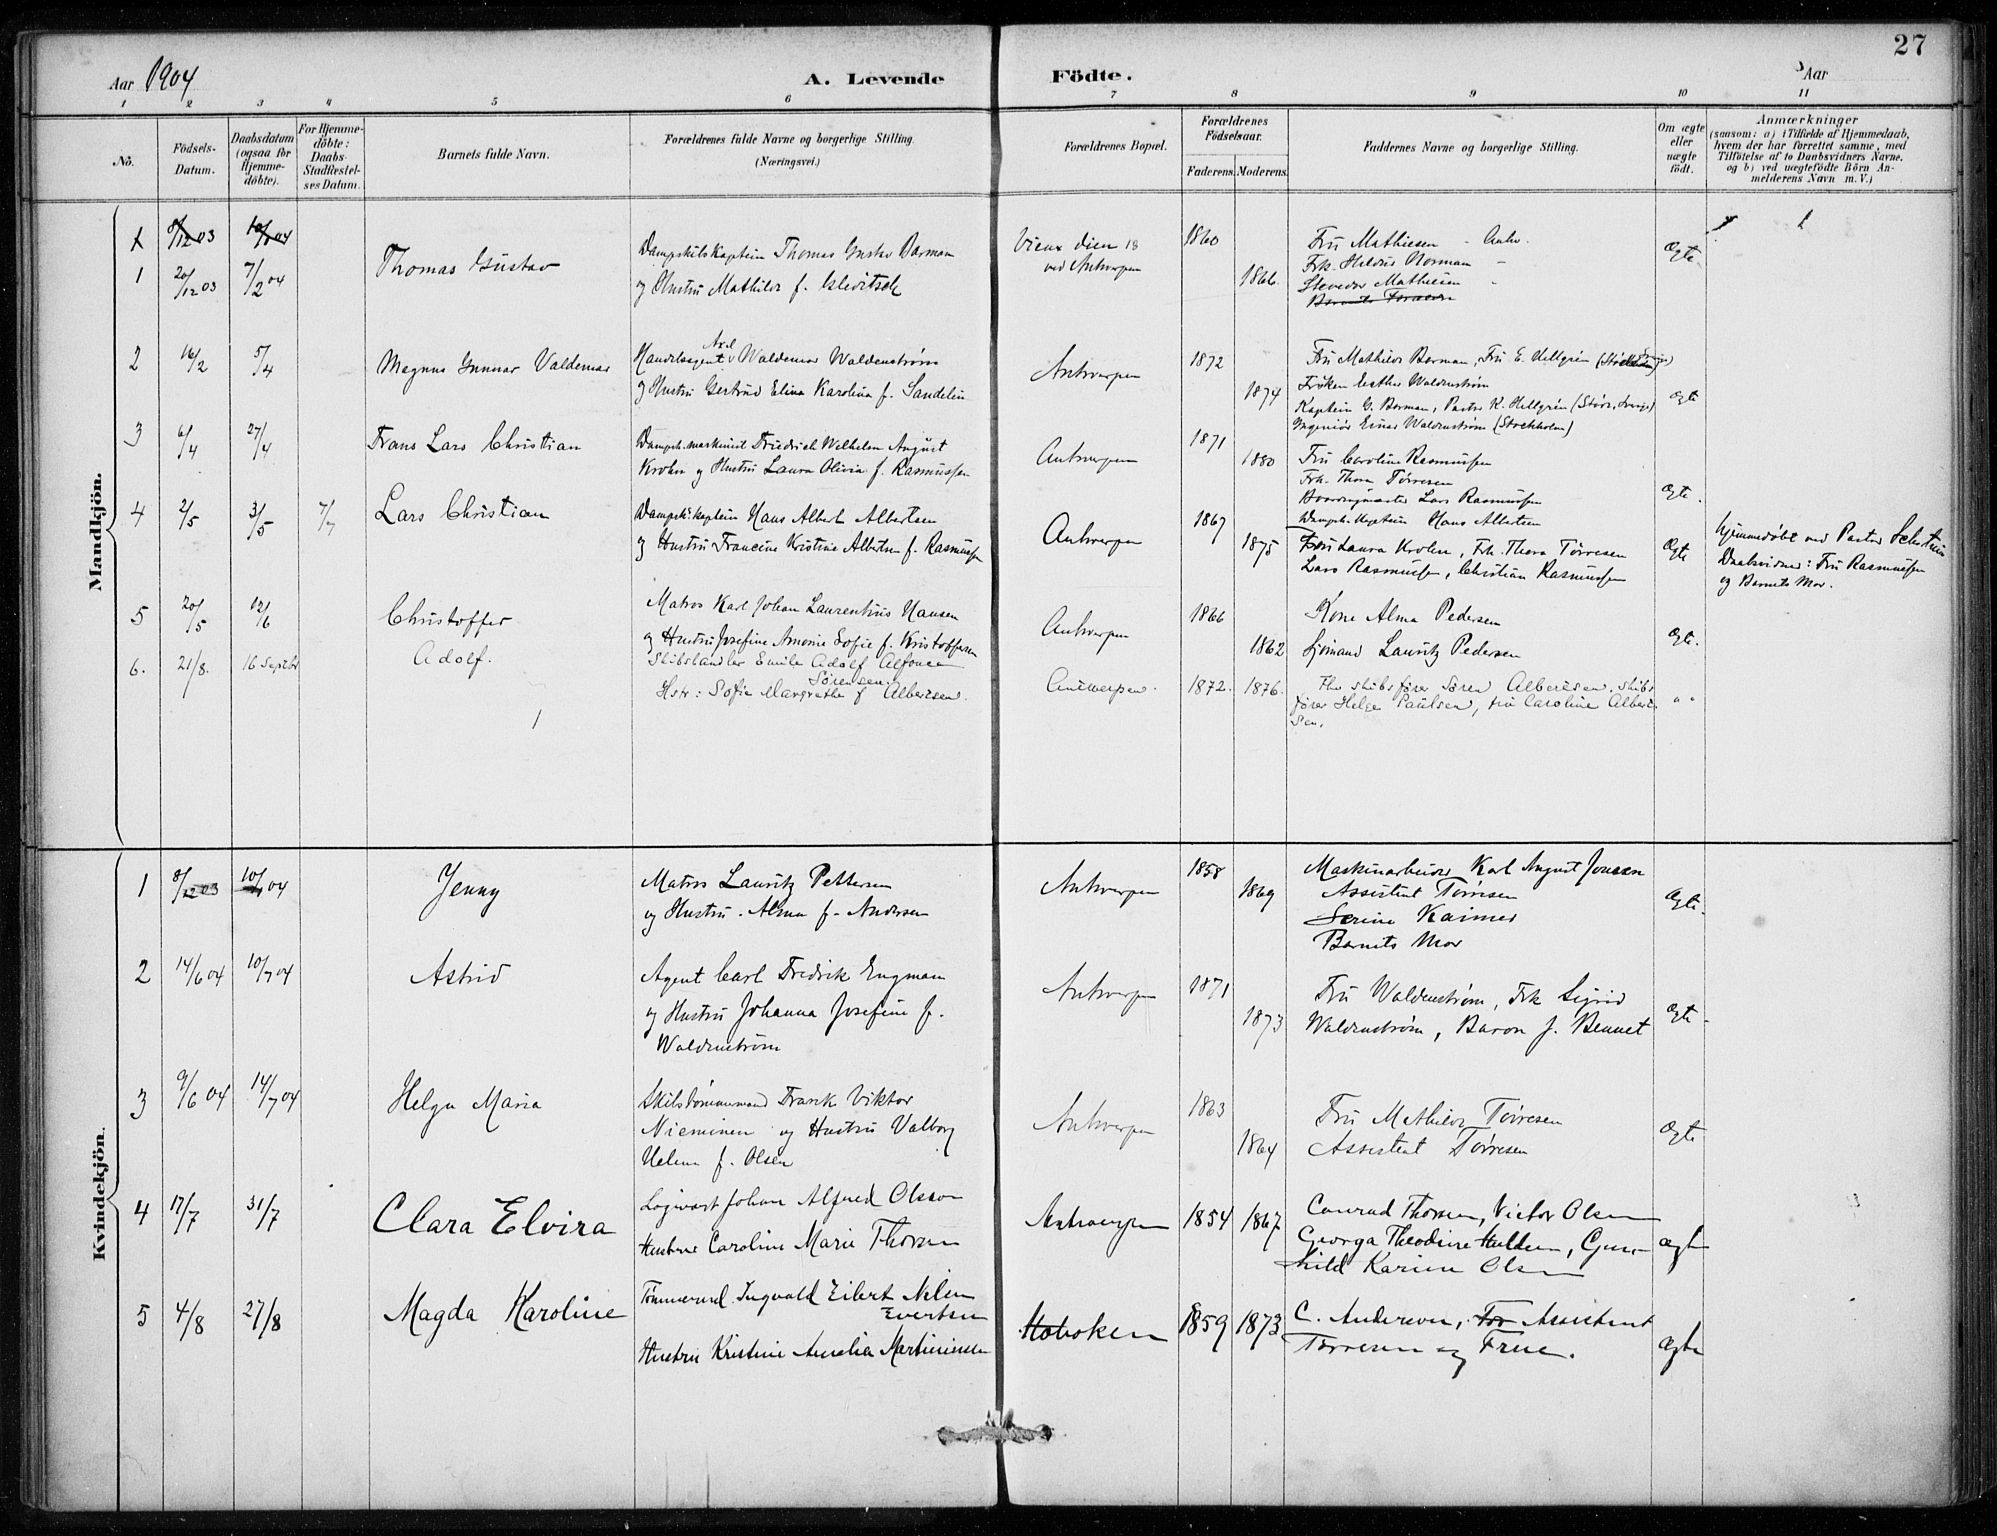 27
Aar 1904
A. Levende Födte.
Aar
1 2 3 4 5 6 7 8 9 10 11
Nô.
Födsels-
Datum.
Daabsdatum
(ogsaa for
Hjemme-
döbte).
For Hjemme-
döbte:
Daabs-
Stadfæstel-
ses Datum.
Barnets fulde Navn.
Forældrenes fulde Navne og borgerlige Stilling.
(Næringsvei.)
Forældrenes Bopæl.
Forældrenes
Födselsaar.
Faderens. Moderens.
Faddernes Navne og borgerlige Stilling.
Om ægte
eller
uægte
födt.
Anmærkninger
(saasom: a) i Tilfælde af Hjemmedaab,
hvem der har forrettet samme, med
Tilföielse af to Daabsvidners Navne,
og b) ved uægtefödte Börn An-
melderens Navn m. V.)
Mandkjön.
1 8/12 03 10/1 04
1 20/12 03 7/2 04
Thomas Gustav
Dampskibskaptein Thomas Gustav Borman
og Hustru Mathilde f.
Vieux dieu 18
ved Antwerpen
1860 1866.
Fru Mathiesen - Antw.
Frk. Norman -
Stevedor Mathiesen
Ægte
2 16/2 5/4
Magnus Gunnar Valdemar
Axel
Handelsagent Waldemar Waldenstrøm
og Hustru Gertrud Elina Karolina f. Sandelin
Antwerpen
1872 1874
Fru Mathilde Borman, Fru E. Hellgrén
Frøken Esther Waldenstrøm
Kaptein G. Borman, Pastor K. Hellgrén
Ingeniör Einar Waldenstrøm (Stockholm)
Ægte
3 6/4 27/4
Frans Lars Christian
Dampsk.maskinist Friedrich Wilhelm August
Krohn og Hustru Laura Olivia f. Rasmussen
Antwerpen
1871 1880
Fru Caroline Rasmussen
Frk. Thora Tørresen
Boardingmaster Lars Rasmussen
Dampsk. Kaptein Hans Albertsen
Ægte.
4 2/5 31/5 7/7
Lars Christian
Dampsk. kaptein Hans Albert Albertsen
og Hustru Francine Kristine Albertsen f. Rasmussen
Antwerpen
1867 1875
Fru Laura Krohn, Frk. Thora Tørresen
Lars Rasmussen, Christian Rasmussen
Ægte
hjemmedøbt ved Pastor
Daabsvidner: Fru Rasmussen
og Barnets Mor.
5 20/5 12/6
Christoffer
Matros Karl Johan Laurentius Hansen
og Hustru Josefine Amonie Sofie f. Kristoffersen
Antwerpen
1866 1862
Kone Alma Pedersen
Sjømand Lauritz Pedersen
Ægte.
6. 21/8. 16 Septbr
Adolf.
Skibshandler Emile Adolf Alfonce
Sörensen.
Hstr: Sofie Margrethe f Albertsen.
Antwerpen.
1872. 1876.
Fhv skibsfører Sören Albertsen, skibs
fører Helge Paulsen, fru Caroline Albert
sen.
" "
1
Kvindekjön.
1 8/12 03 10/1 04
Jenny
Matros Lauritz Pettersen
og Hustru. Alma f. Andersen
Antwerpen
1858 1869
Maskinarbeider Karl August Jonsson
Assistent Tørresen
Serine Kaimer
Barnets Mor
Ægte.
2 14/6 04 10/7 04
Astrid
Agent Carl Fredrik Engman
og Hustru Johanna Josefine f.
Waldenstrøm
Antwerpen
1871 1873
Fru Waldenstrøm, Frk Sigrid
Waldenstrøm, Baron f. Bennet
Ægte
3 9/6 04 14/7 04
Helga Maria
Skibstømmermand Frank Viktor
Nieminen og Hustru Valborg
Helena f. Olsen
Antwerpen
1863 1864
Fru Mathilde Tørresen
Assistent Tørresen
Ægte
4 17/7 31/7
Clara Elvira
Logivært Johan Alfred Olsson
Hustru Caroline Marie Thorsen
Antwerpen
1854 1867
Conrad Thorsen, Victor Olsen
Georga Theodine Hulden, Gun-
hild Karine Olsen
ægte
5 4/8 27/8
Magda Karoline
Tömmermd. Ingvald Eilert Nilsen
Evertsen
Hustru Kristine Amalia Martinsen
Hoboken
1859 1873
C. Andersen, Assistent
Tørresen og Frue.
Ægte